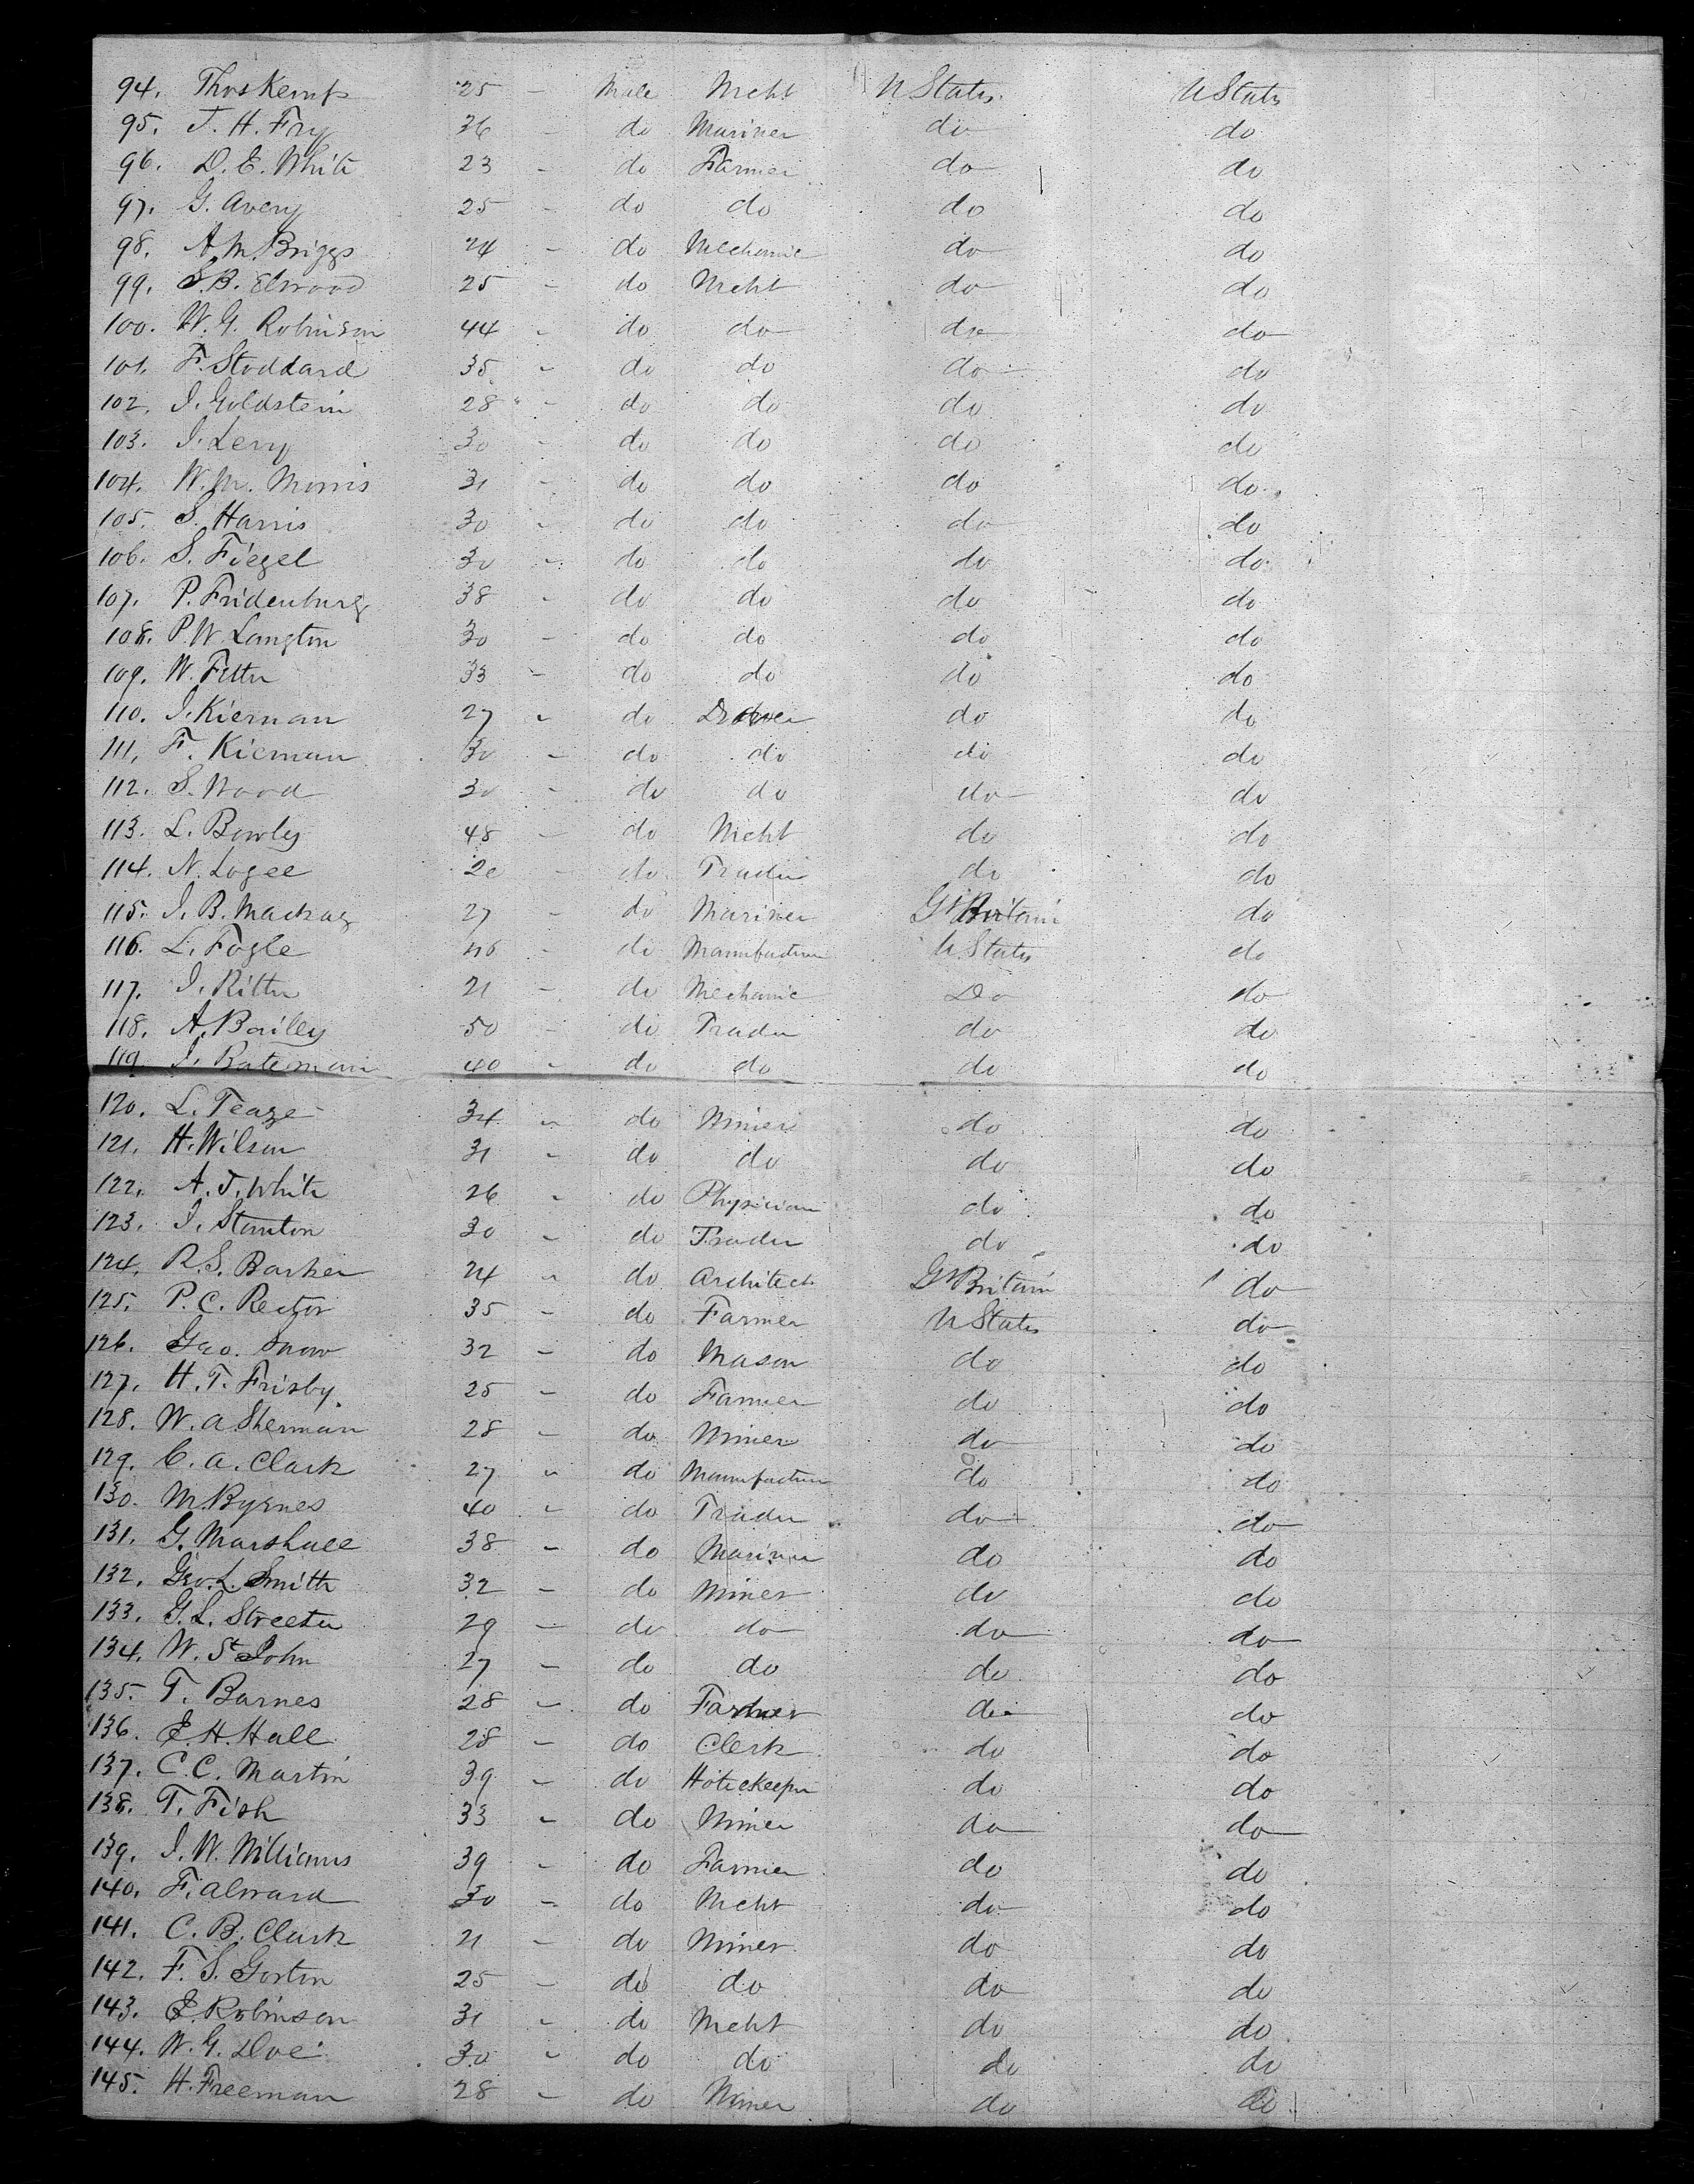 94. Thos Kemp 25 - Male Mcht U States U States
95. T. H. Fry 36 - do Mariner do do
96. D. E. White 23 - do Farmer do do
97. G. Avery 25 - do do do do
98. A. M. Briggs 24 - do Mechanic do do
99. S. B. Elwood 25 - do Mcht do do
100. W. G. Robinson 44 - do do do do
101. F. Stoddard 35 - do do do do
102. I. Goldstein 28 - do do do do
103. I. Levy 30 - do do do do
104. W. M. Morris 31 - do do do do
105. S. Harris 30 - do do do do
106. S. Fiegel 30 - do do do do
107. P. Fridenburg 38 - do do do do
108. P. W. Langton 30 - do do do do
109. W. Fetter 33 - do do do do
110. J. Kiernan 27 - do Drover do do
111. F. Kiernan 30 - do do do do
112. S. Wood 30 - do do do do
113. L. Bowley 48 - do Mcht do do
114. N. Logee 20 - do Trader do do
115. J. B. Mackay 27 - do Mariner Gt Britain do
116. L. Fogle 46 - do Manufacturer U States do
117. J. Ritter 21 - do Mechanic Do do
118. A. Bailey 50 - do Trader do do
119. J. Bateman 40 - do do do do
120. L. Teaze 34 - do Miner do do
121. H. Wilson 31 - do do do do
122. A. J. White 26 - do Physician do do
123. J. Stanton 30 - do Trader do do
124. R. S. Barker 24 - do Architect Gt Britain do
125. P. C. Rector 35 - do Farmer U States do
126. Geo. Snow 32 - do Mason do do
127. H. T. Frisby 25 - do Farmer do do
128. W. A. Sherman 28 - do Miner do do
129. C. A. Clark 27 - do Manufacturer do do
130. M. Byrnes 40 - do Trader do do
131. G. Marshall 38 - do Mariner do do
132. Geo. L. Smith 32 - do Miner do do
133. G. L. Streeter 29 - do do do do
134. W. St John 27 - do do do do
135. T. Barnes 28 - do Farmer do do
136. E. H. Hall 28 - do Clerk do do
137. C. C. Martin 39 - do Hotelkeeper do do
138. T. Fish 33 - do Miner do do
139. J. W. Williams 39 - do Farmer do do
140. F. Alward 30 - do Mcht do do
141. C. B. Clark 21 - do Miner do do
142. F. S. Gorton 25 - do do do do
143. E. Robinson 31 - do Mcht do do
144. W. G. Doe 30 - do do do do
145. H. Freeman 28 - do Miner do do